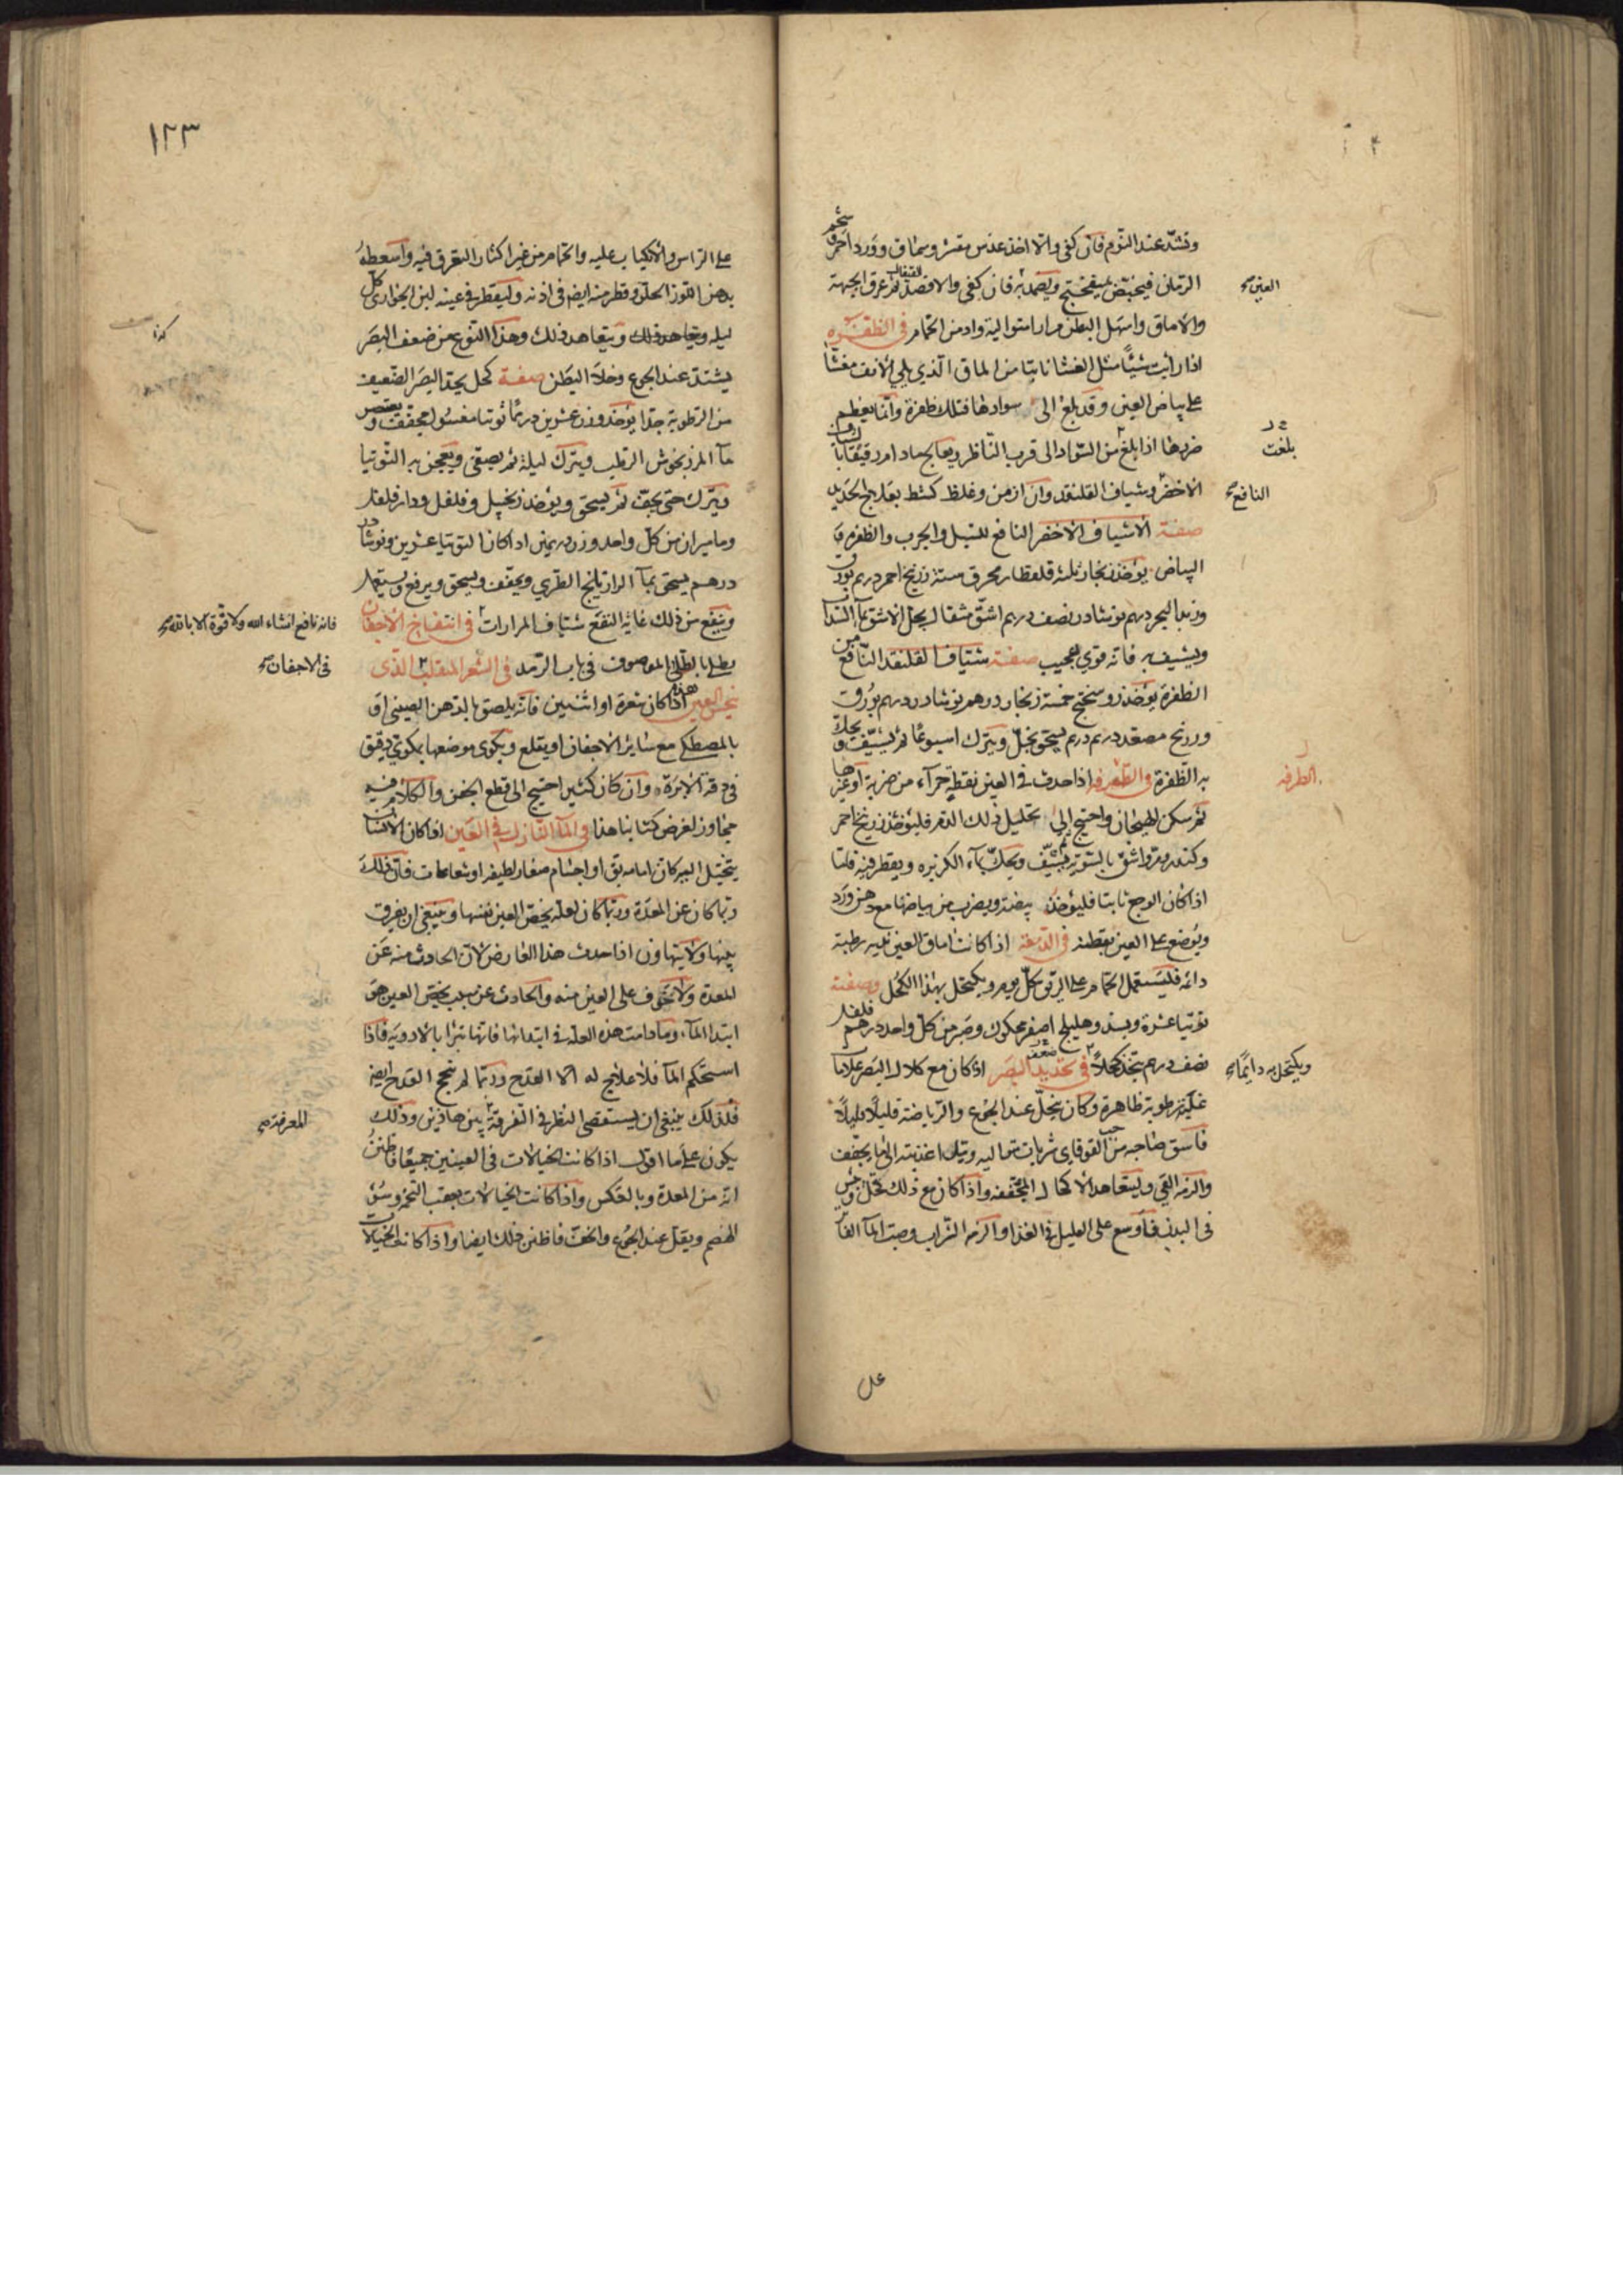 وتشد عند النوم فان كفى والا اخذ عدس مقشر وسماق وورد احمر وشحم
الرمان فيخبص بميفختج ويضمد به فان كفى والا فصد القيفال ثم عرق الجبهة
العين صح
والاماق واسهل البطن مرارا متوالية وادمن الحمام في الظفره
اذا رايت شيئا مثل الغشا نابتا من الماق الذي يلي الانف مغشا
على بياض العين وقد بلغ الى سوادها فتلك ظفرة وانما يعظم
ضررها اذا بلغ من السواد الى قرب الناظر ويعالج مادام رقيقا بالشياف
بلغت
الاخضر وشياف القلنقد وان ازمن وغلظ كشط بعلاج الحديد
النافع صح
صفة الاشياف الاخضر النافع للسبل والجرب والظفره و
البياض يوخذ زنجار ثلثه قلقطار محرق ستة زرنيخ احمر درهم بورق
وزبد البحر درهم نوشادر نصف درهم اشق مثقال يحل الاشق بماء السداب
ويشيف به فانه قوي عجيب صفة شياف القلنقد النافع من
الظفرة يوخذ روسختج خمسة زنجار درهم نوشادر درهم بورق
وزرنيخ مصعد درهم درهم يسحق بخل ويترك اسبوعا ثم يشيف ويحك
به الظفرة في الطرفه اذا حدث في العين نقطة حمراء من ضربة او غيرها
الطرفه
ثم سكن الهيجان واحتيج الى تحليل ذلك الدم فليؤخذ زرنيخ احمر
وكندر ومر واشق بالسوية يشيف ويحك بماء الكزبره ويقطر فيه فاما
اذا كان الوجع ثابتا فليؤخذ بيضة ويضرب من بياضها مع دهن ورد
ويوضع على العين بقطنه في الدمعة اذا كانت اماق العين نديه رطبة
دائمه فليستعمل الحمام على الريق كل يوم ويكتحل بهذا الكحل وصفته
توتيا عشرة وبسد وهليلج اصفر محكوك وصبر من كل واحد درهم فلفل
نصف درهم يتخذ كحلا في تحديد البصر اذا كان مع كلال البصر علامات
ضعف
ويكتحل به دايما صح
غلبة رطوبة ظاهرة وكان ينحل عند الجوع والرياضة قليلا قليلا
فاسق صاحبه من حب القوقاي شربات متواليه ومل اغذيته الى ما يجفف
والزمه القي وليتعاهد الاكحال المجففه واذا كان مع ذلك قحل ويبس
في البدن فاوسع على العليل في الغذاء والزمه الشراب وصب الماء الفاتر
على

١٢٣
على الراس والانكباب عليه والحمام من غير اكثار التعرق فيه واسعطه
بدهن اللوز الحلو وقطر منه ايضا في اذنه وليقطر في عينه لبن الجواري كل
ليله ويتعاهد ذلك وهذا النوع من ضعف البصر
كذا
يشتد عند الجوع وخلا البطن صفة كحل يحد البصر الضعيف
من الرطوبة جدا يؤخذ وزن عشرين درهما توتيا مغسول مجفف ويعتصر
ماء المرزنجوش الرطب ويترك ليلة ثم يصفى ويعجن به التوتيا
ويترك حتى يجف ثم يسحق ويؤخذ زنجبيل وفلفل ودارفلفل
وماميران من كل واحد وزن درهمين اذا كان التوتيا عشرين ونوشادر
درهم يسحق بماء الرازيانج الطري ويجفف ويسحق ويرفع ويستعمل
وينفع من ذلك غاية النفع شياف المرارات في انتفاخ الاجفان
فانه نافع انشاء الله ولا قوة الا بالله صح
يطلى بالطلاء الموصوف في باب الرمد في الشعر المنقلب الذي
في الاجفان صح
ينخس العين هذا اذا كان شعرة او اثنتين فانه يلصق بالدهن الصيني او
بالمصطكي مع سائر الاجفان او يقلع ويكوى موضعها بمكوي دقيق
في دقة الابرة وان كان كثير احتيج الى قطع الجفن والكلام فيه
مجاوز لغرض كتابنا هذا في الماء النازل في العين اذا كان الانسان
يتخيل اليه كان امامه بق او اجسام صغار لطيفه او شعاعات فان ذلك
ربما كان عن المعدة وربما كان لعلة يخص العين نفسها وينبغي ان يفرق
بينها ولا يتهاون اذا حدث هذا العارض لان الحادث منه عن
المعدة ولا تخوف على العين منه والحادث عن سبب يخص العين هو
ابتدا الماء وما دامت هذه العلة في ابتدائها فانها تبرا بالادويه فاذا
استحكم الماء فلا علاج له الا القدح وربما لم ينجح القدح ايضا
فلذلك ينبغي ان يستقصى النظر في التفرقة بين هاذين وذلك
المعرفة صح
يكون على ما اقول اذا كانت الخيالات في العينين جميعا فاظنن
انه من المعدة وبالعكس واذا كانت الخيالات بعقب التخم وسوء
الهضم ويقل عند الجوع والخف فاظنن ذلك ايضا واذا كانت الخيالات